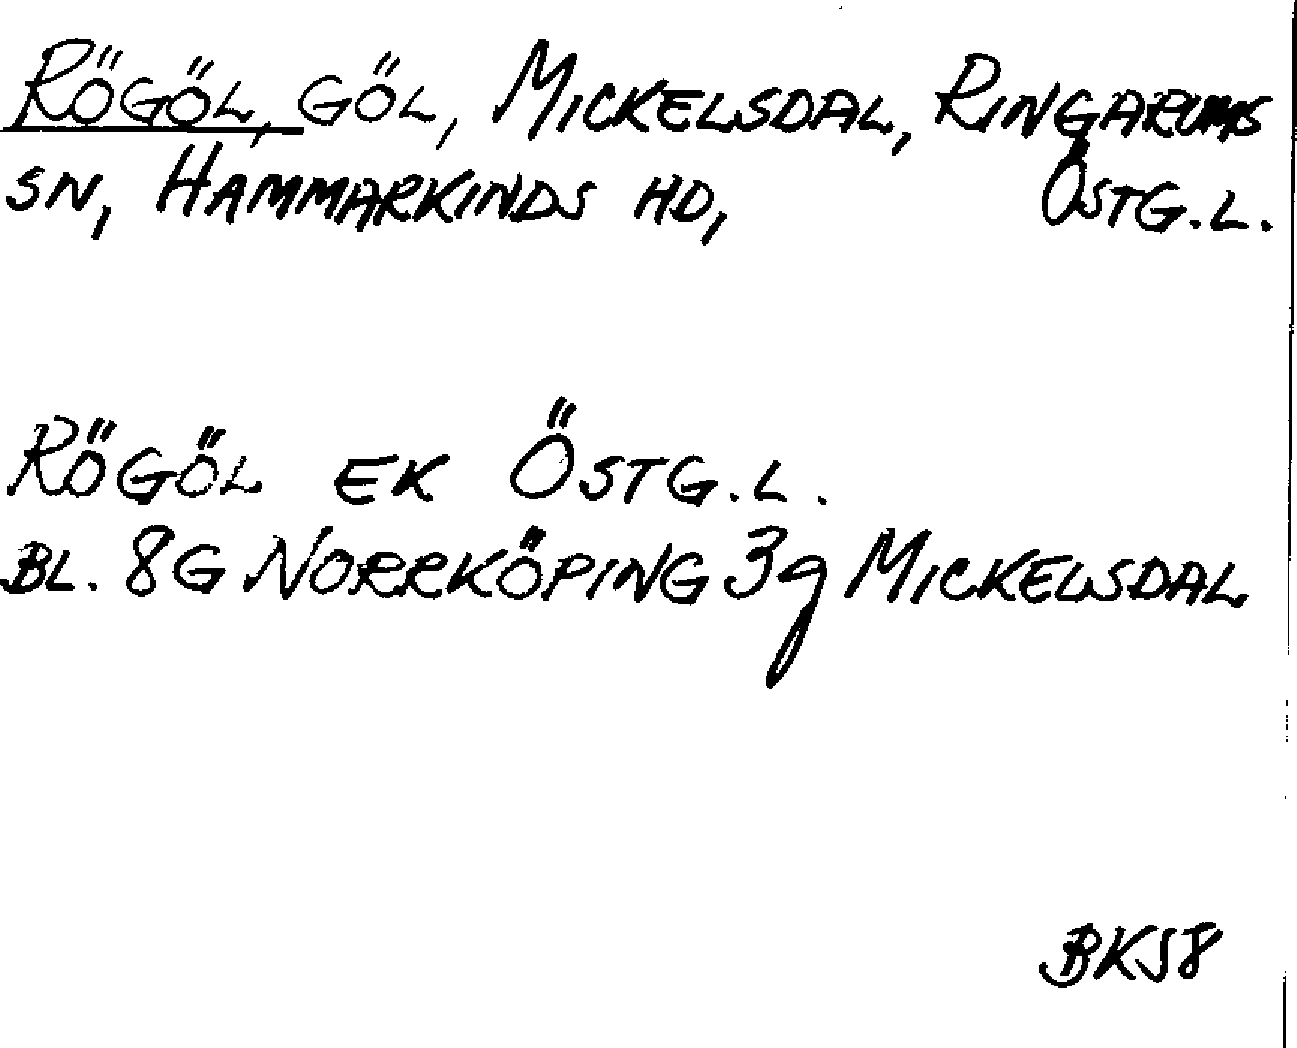 RÖGÖL, GÖL, MICKELSDAL, RINGARUMS
SN, HAMMARKINDS HD, ÖSTG.L.
RÖGÖL EK ÖSTG.L.
BL. 8G NORRKÖPING 3g MICKELSDAL
BKS8